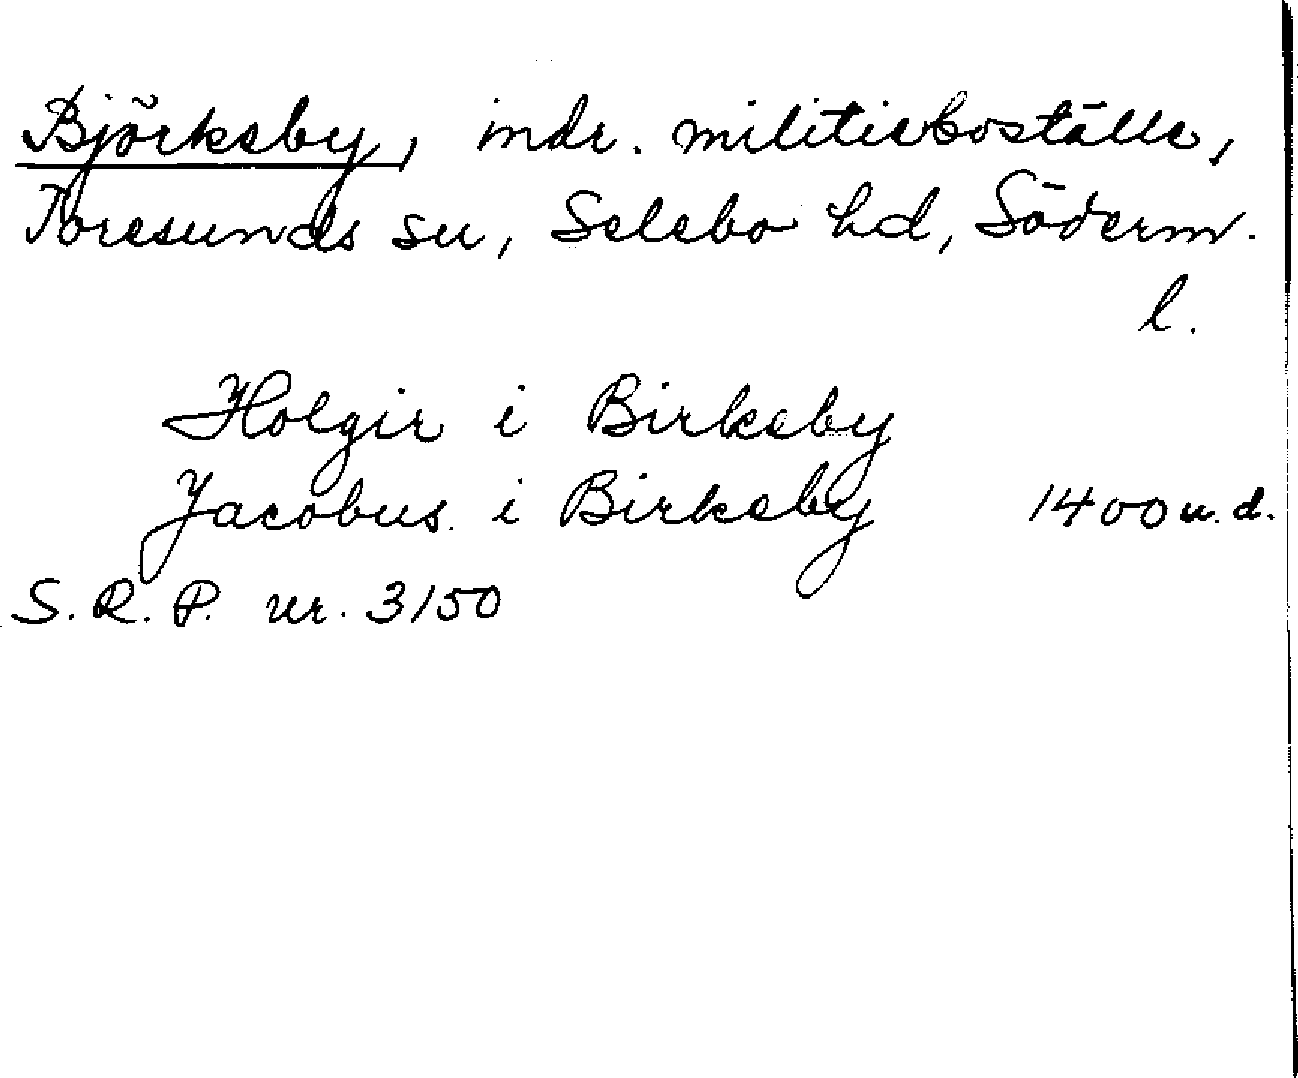 Björkeby, indr. militieboställe,
Toresunds sn, Selebo hd, Söderm.
l.
Holgir i Birkeby
Jacobus i Birkeby 1400 u. d.
S. R. P. nr. 3150